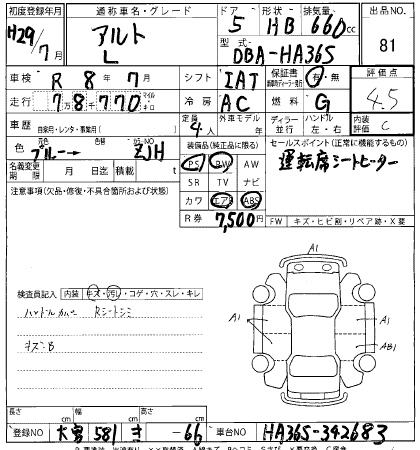 初度登録年月 通称車名・グレード ドア 形状 排気量 出品NO.
H29/7月 アルト L 5 HB 660cc 81
型式 DBA-HA36S
車検 R 8年 7月 シフト IAT 保証書 有・無 評価点
走行 78千770 マイル キロ 冷房 AC 燃料 G 4.5
車歴 自家用・レンタ・事業用( ) 定員 4人 外車モデル 年 ディーラー 並行 ハンドル 左・右 内装評価 C
色 ブルー→ 色替 カラーNO ZJH 装備品(純正品に限る) セールスポイント(正常に機能するもの)
名義変更期限 月 日迄 積載 t PS PW AW 運転席シートヒーター
注意事項(欠品・修復・不具合箇所および状態) SR TV ナビ
カワ エアB ABS
R券 7,500円 FW キズ・ヒビ割・リペア跡・X要
A1
検査員記入 内装 キズ・汚レ・コゲ・穴・スレ・キレ
ハンドルカバー Rシートシミ A1 A1
キズ:B AB1
長さ cm 幅 cm 高さ cm
登録NO 大宮 581 き -66 車台NO HA36S-342683